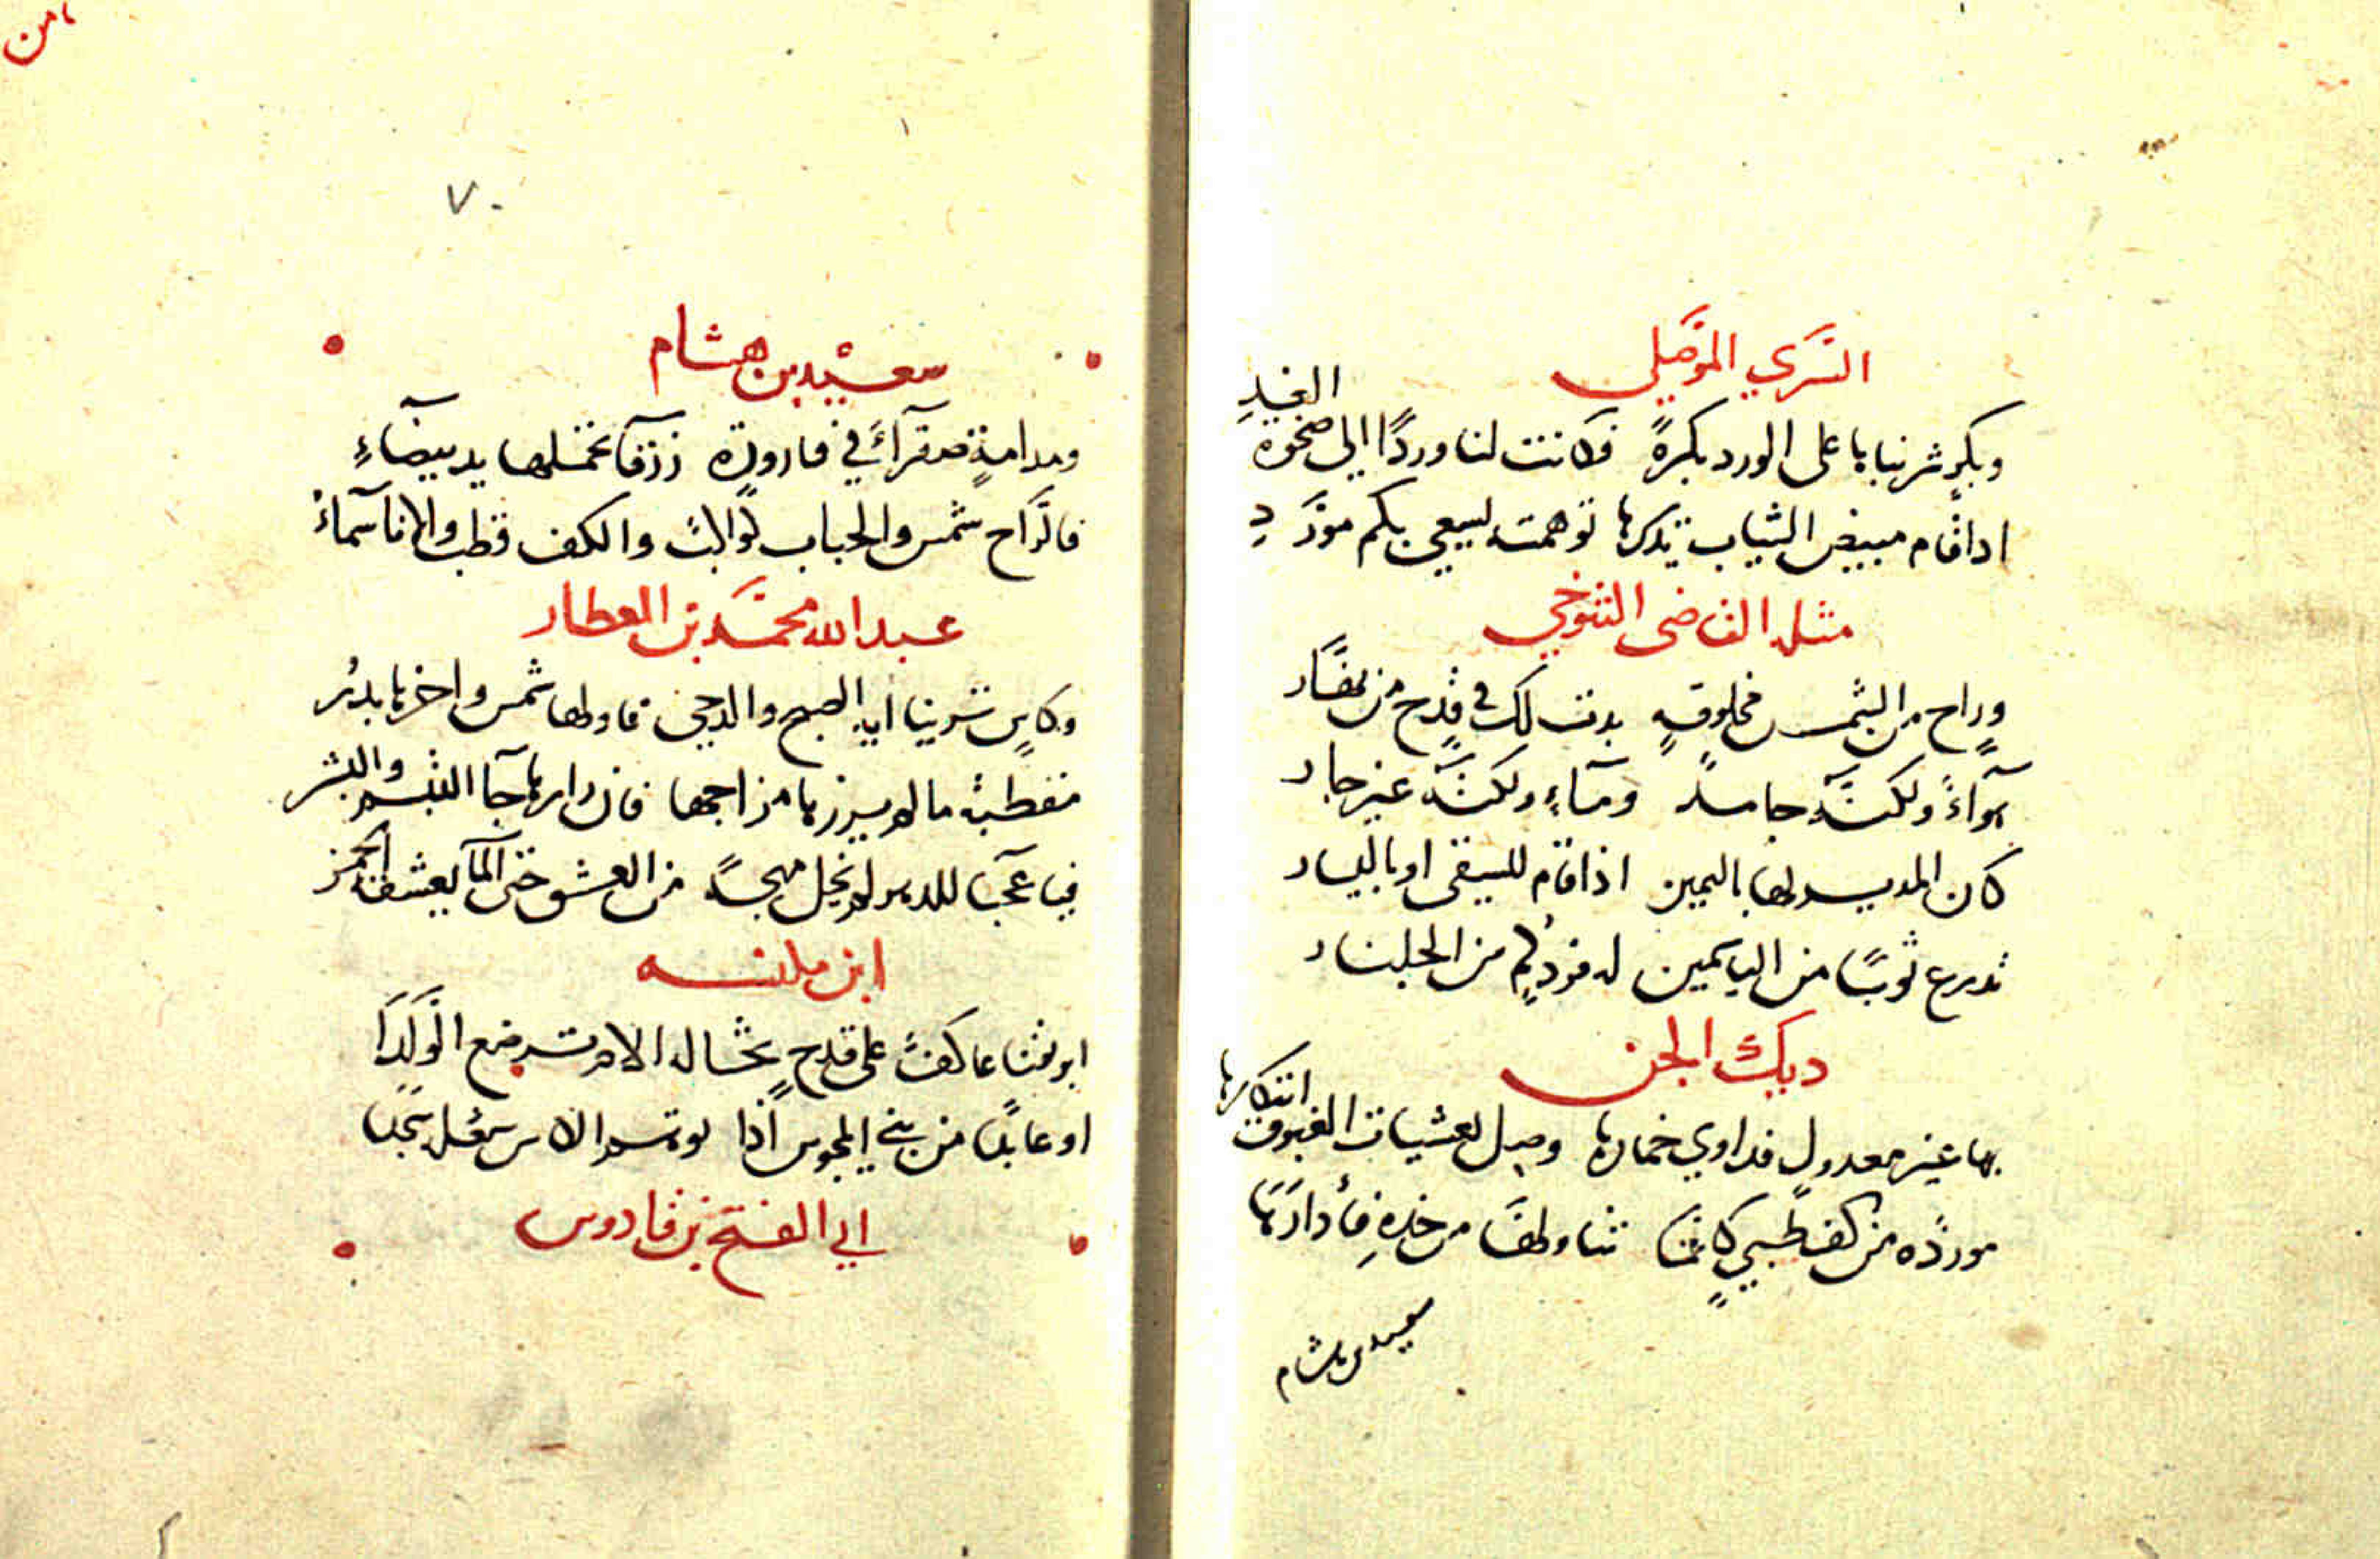 السَّري الموَصِلي
وبكرٍ شربناها على الورد بكرةً فكانت لنا وردًا الى ضحوة الغدِ
اذا قام مبيض الثياب يديرها توهمته يسعى بكم مورَّدِ
مثله القاضى التنوخي
وراحٍ من الشمس مخلوقةٍ بدت لك في قدحٍ من نهار
هوآءً ولكنّه جامدٌ ومآءٍ ولكنّه غير جار
كان المدير لها باليمين اذا قام للسقى او باليسار
تدرع ثوبًا من الياسمين له فرد كمٍ من الجلنار
ديك الجن
بها غير معدولٍ فداوي خمارها وصل لعشيات الغبوق ابتكارها
موردَّه من كف ظبيٍ كانمّا تناولهَا من خدِهِ فأدارَهَا
سعيد بن هشام
٧٠
سعيْد بن هشام
ومدامةٍ صفرآءَ في قارورةٍ زرقآ تحملها يد بيضآءِ
فالرَّاح شمس والحباب كواكبٌ والكف قطب والانا سماءُ
عبد الله محمَّد بن العطار
وكاسٍ ترينا اية الصبح والدجى فاولها شمس واخرها بدرُ
مقطبة ما لم يزرها مزاجها فان زارها جآ التبسم والبشر
فيا عجبًا للدهر لم يخل مهجةً من العشق حتى المآ يعشقه الخمر
ابن
ابريقنا عاكفٌ على قدحٍ تخاله الام ترضع الوَلَدَا
او عابدًا من بني المجوس اذا توهم الكاس شعلة سجدا
ابي الفتح بن قادوس